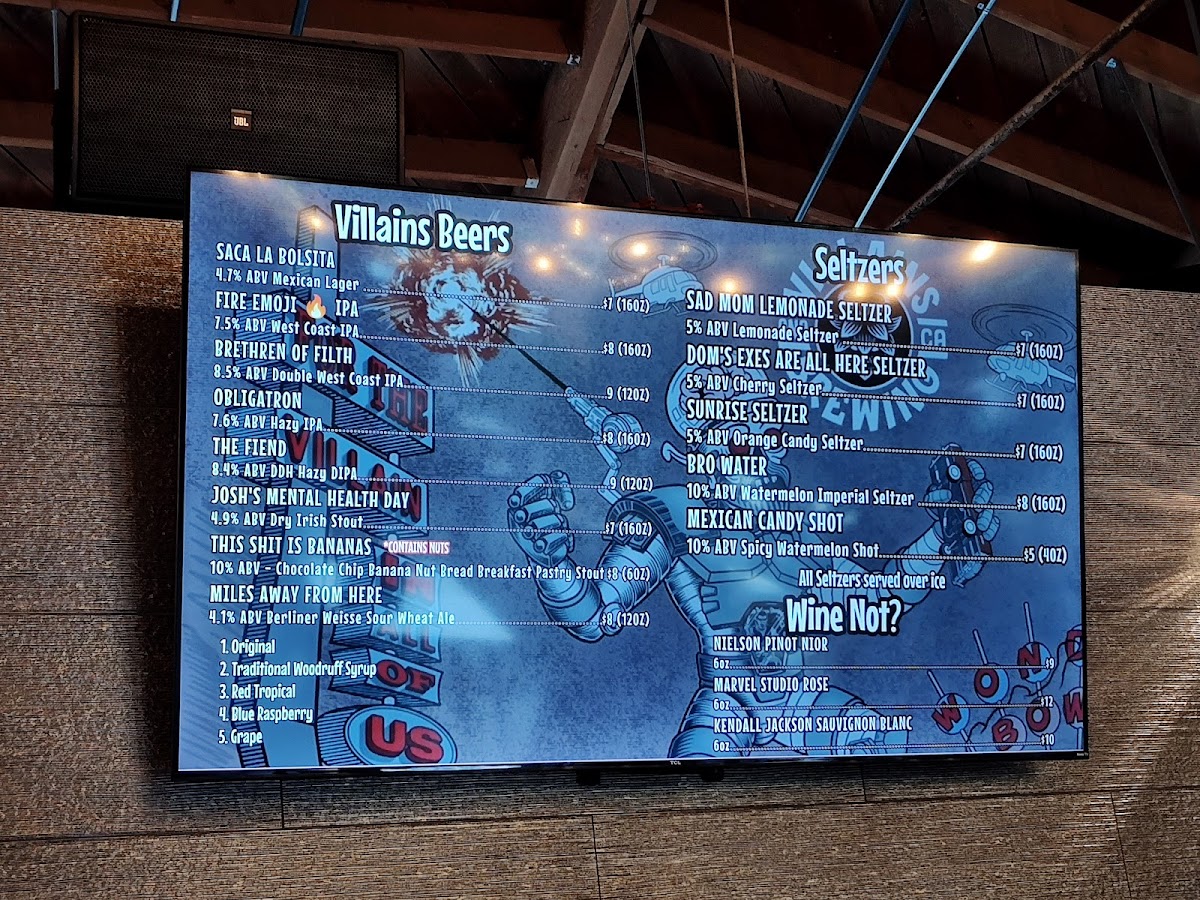 JBL
Villains Beers
SACA LA BOLSITA
4.7% ABV Mexican Lager $7 (16OZ)
FIRE EMOJI 🔥 IPA
7.5% ABV West Coast IPA $8 (16OZ)
BRETHREN OF FILTH
8.5% ABV Double West Coast IPA 9 (12OZ)
OBLIGATRON
7.6% ABV Hazy IPA $8 (16OZ)
THE FIEND
8.4% ABV DDH Hazy DIPA 9 (12OZ)
JOSH'S MENTAL HEALTH DAY
4.9% ABV Dry Irish Stout $7 (16OZ)
THIS SHIT IS BANANAS *CONTAINS NUTS
10% ABV – Chocolate Chip Banana Nut Bread Breakfast Pastry Stout $8 (6OZ)
MILES AWAY FROM HERE
4.1% ABV Berliner Weisse Sour Wheat Ale $8 (12OZ)
1. Original
2. Traditional Woodruff Syrup
3. Red Tropical
4. Blue Raspberry
5. Grape
Seltzers
SAD MOM LEMONADE SELTZER
5% ABV Lemonade Seltzer $7 (16OZ)
DOM'S EXES ARE ALL HERE SELTZER
5% ABV Cherry Seltzer $7 (16OZ)
SUNRISE SELTZER
5% ABV Orange Candy Seltzer $7 (16OZ)
BRO WATER
10% ABV Watermelon Imperial Seltzer $8 (16OZ)
MEXICAN CANDY SHOT
10% ABV Spicy Watermelon Shot $5 (4OZ)
All Seltzers served over ice
Wine Not?
NIELSON PINOT NIOR
6oz $9
MARVEL STUDIO ROSE
6oz $12
KENDALL JACKSON SAUVIGNON BLANC
6oz $10
THE
VILLAIN
ALL
OF
US
CA
BREWING
TCL